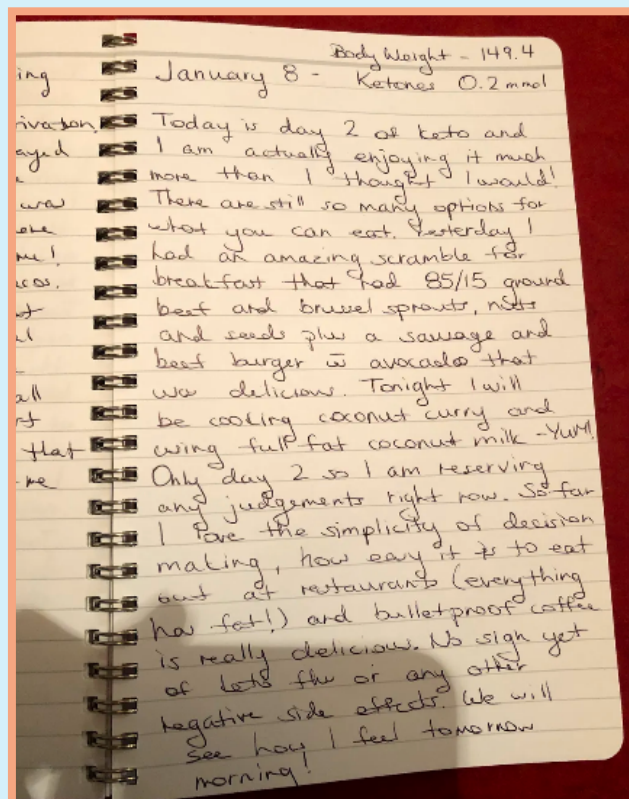 Body Weight - 149.4
January 8 - Ketones 0.2 mmol
Today is day 2 of keto and
I am actually enjoying it much
more than I thought I would!
There are still so many options for
what you can eat. Yesterday I
had an amazing scramble for
breakfast that had 85/15 ground
beef and brussel sprouts, nuts
and seeds plus a sausage and
beef burger w̄ avocados that
was delicious. Tonight I will
be cooking coconut curry and
using full fat coconut milk - YUM!
Only day 2 so I am reserving
any judgements right now. So far
I love the simplicity of decision
making, how easy it is to eat
out at restaurants (everything
has fat!) and bulletproof coffee
is really delicious. No sign yet
of keto flu or any other
negative side effects. We will
see how I feel tomorrow
morning!
ing
ayed
was
all
that
me